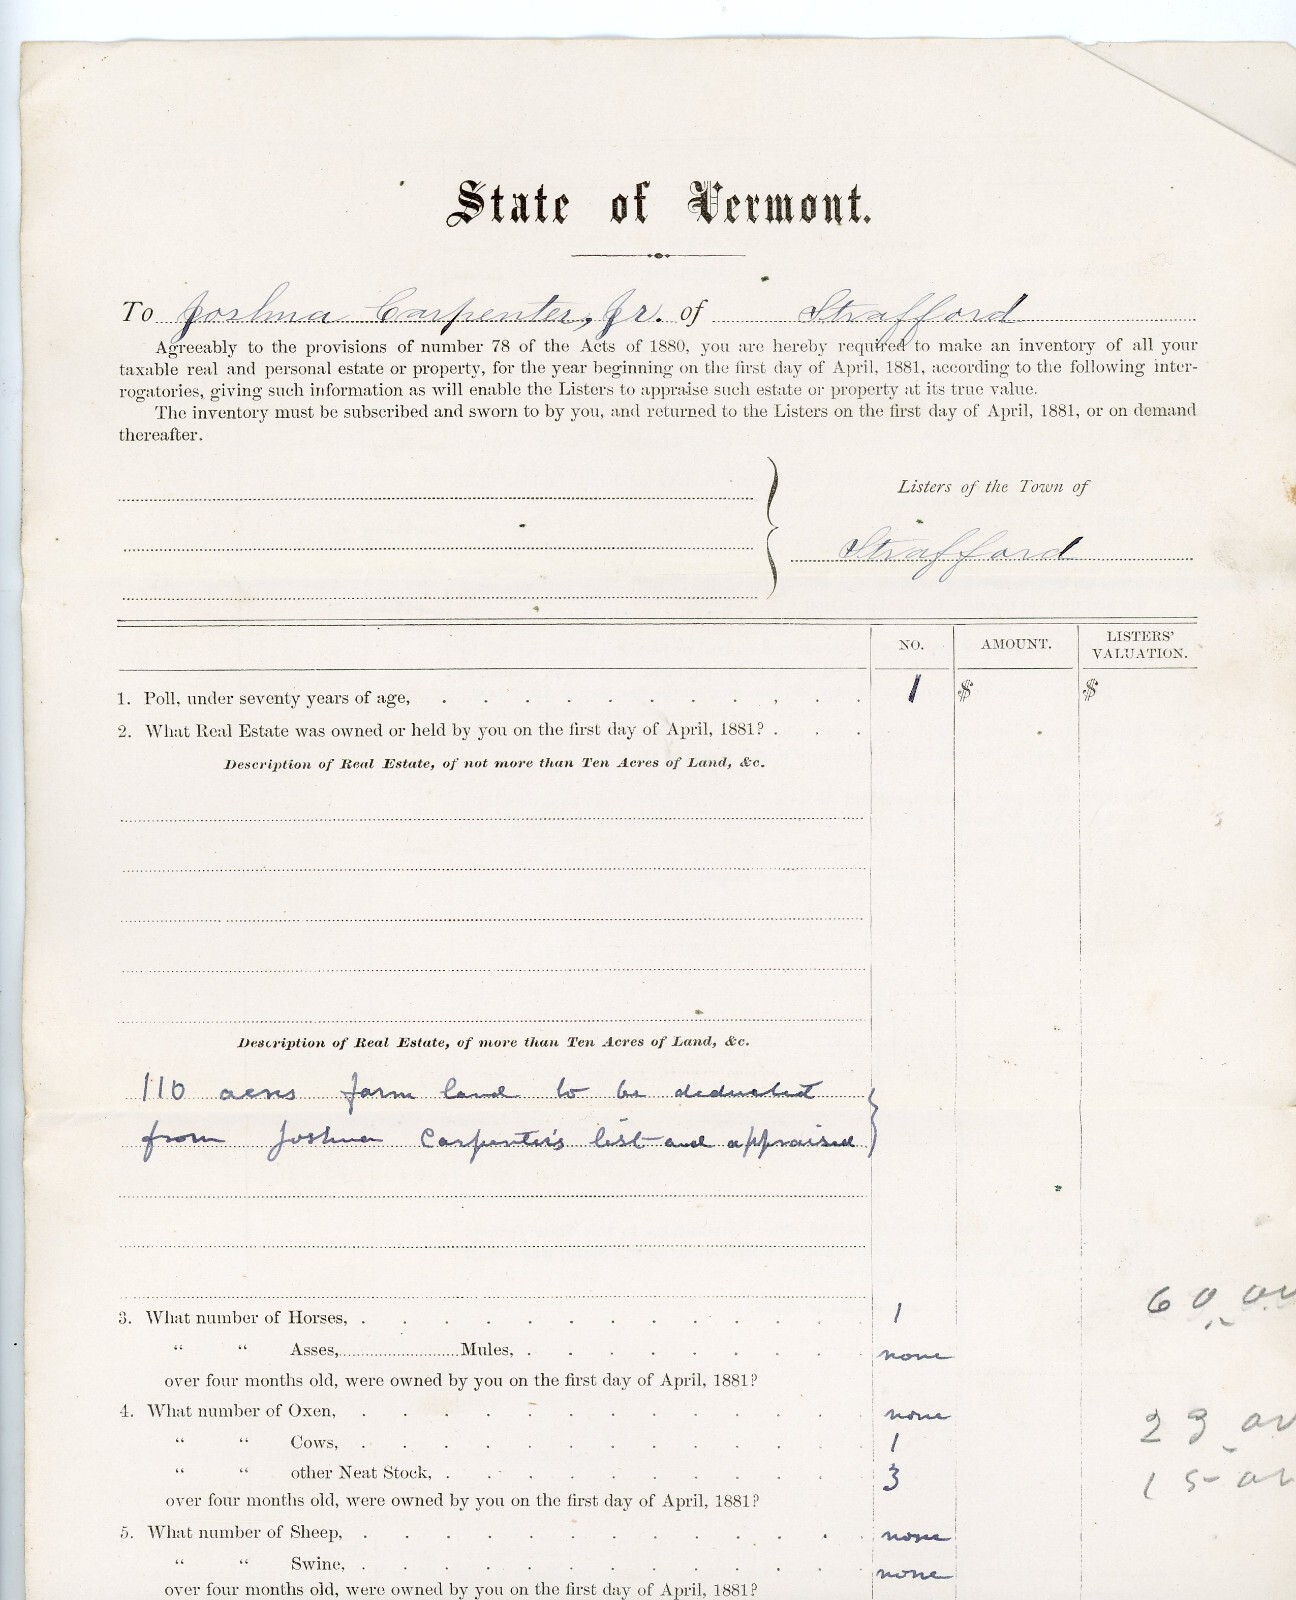 State of Vermont.
To Joshua Carpenter, Jr. of Strafford
Agreeably to the provisions of number 78 of the Acts of 1880, you are hereby required to make an inventory of all your
taxable real and personal estate or property, for the year beginning on the first day of April, 1881, according to the following inter-
rogatories, giving such information as will enable the Listers to appraise such estate or property at its true value.
The inventory must be subscribed and sworn to by you, and returned to the Listers on the first day of April, 1881, or on demand
thereafter.
Listers of the Town of
Strafford
NO. AMOUNT. LISTERS' VALUATION.
1. Poll, under seventy years of age, 1 $ $
2. What Real Estate was owned or held by you on the first day of April, 1881?
Description of Real Estate, of not more than Ten Acres of Land, &c.
Description of Real Estate, of more than Ten Acres of Land, &c.
110 acres farm land to be deducted
from Joshua Carpenter's list and appraised
3. What number of Horses, 1 60
" " Asses, Mules, none
over four months old, were owned by you on the first day of April, 1881?
4. What number of Oxen, none
" " Cows, 1 23
" " other Neat Stock, 3 15
over four months old, were owned by you on the first day of April, 1881?
5. What number of Sheep, none
" " Swine, none
over four months old, were owned by you on the first day of April, 1881?